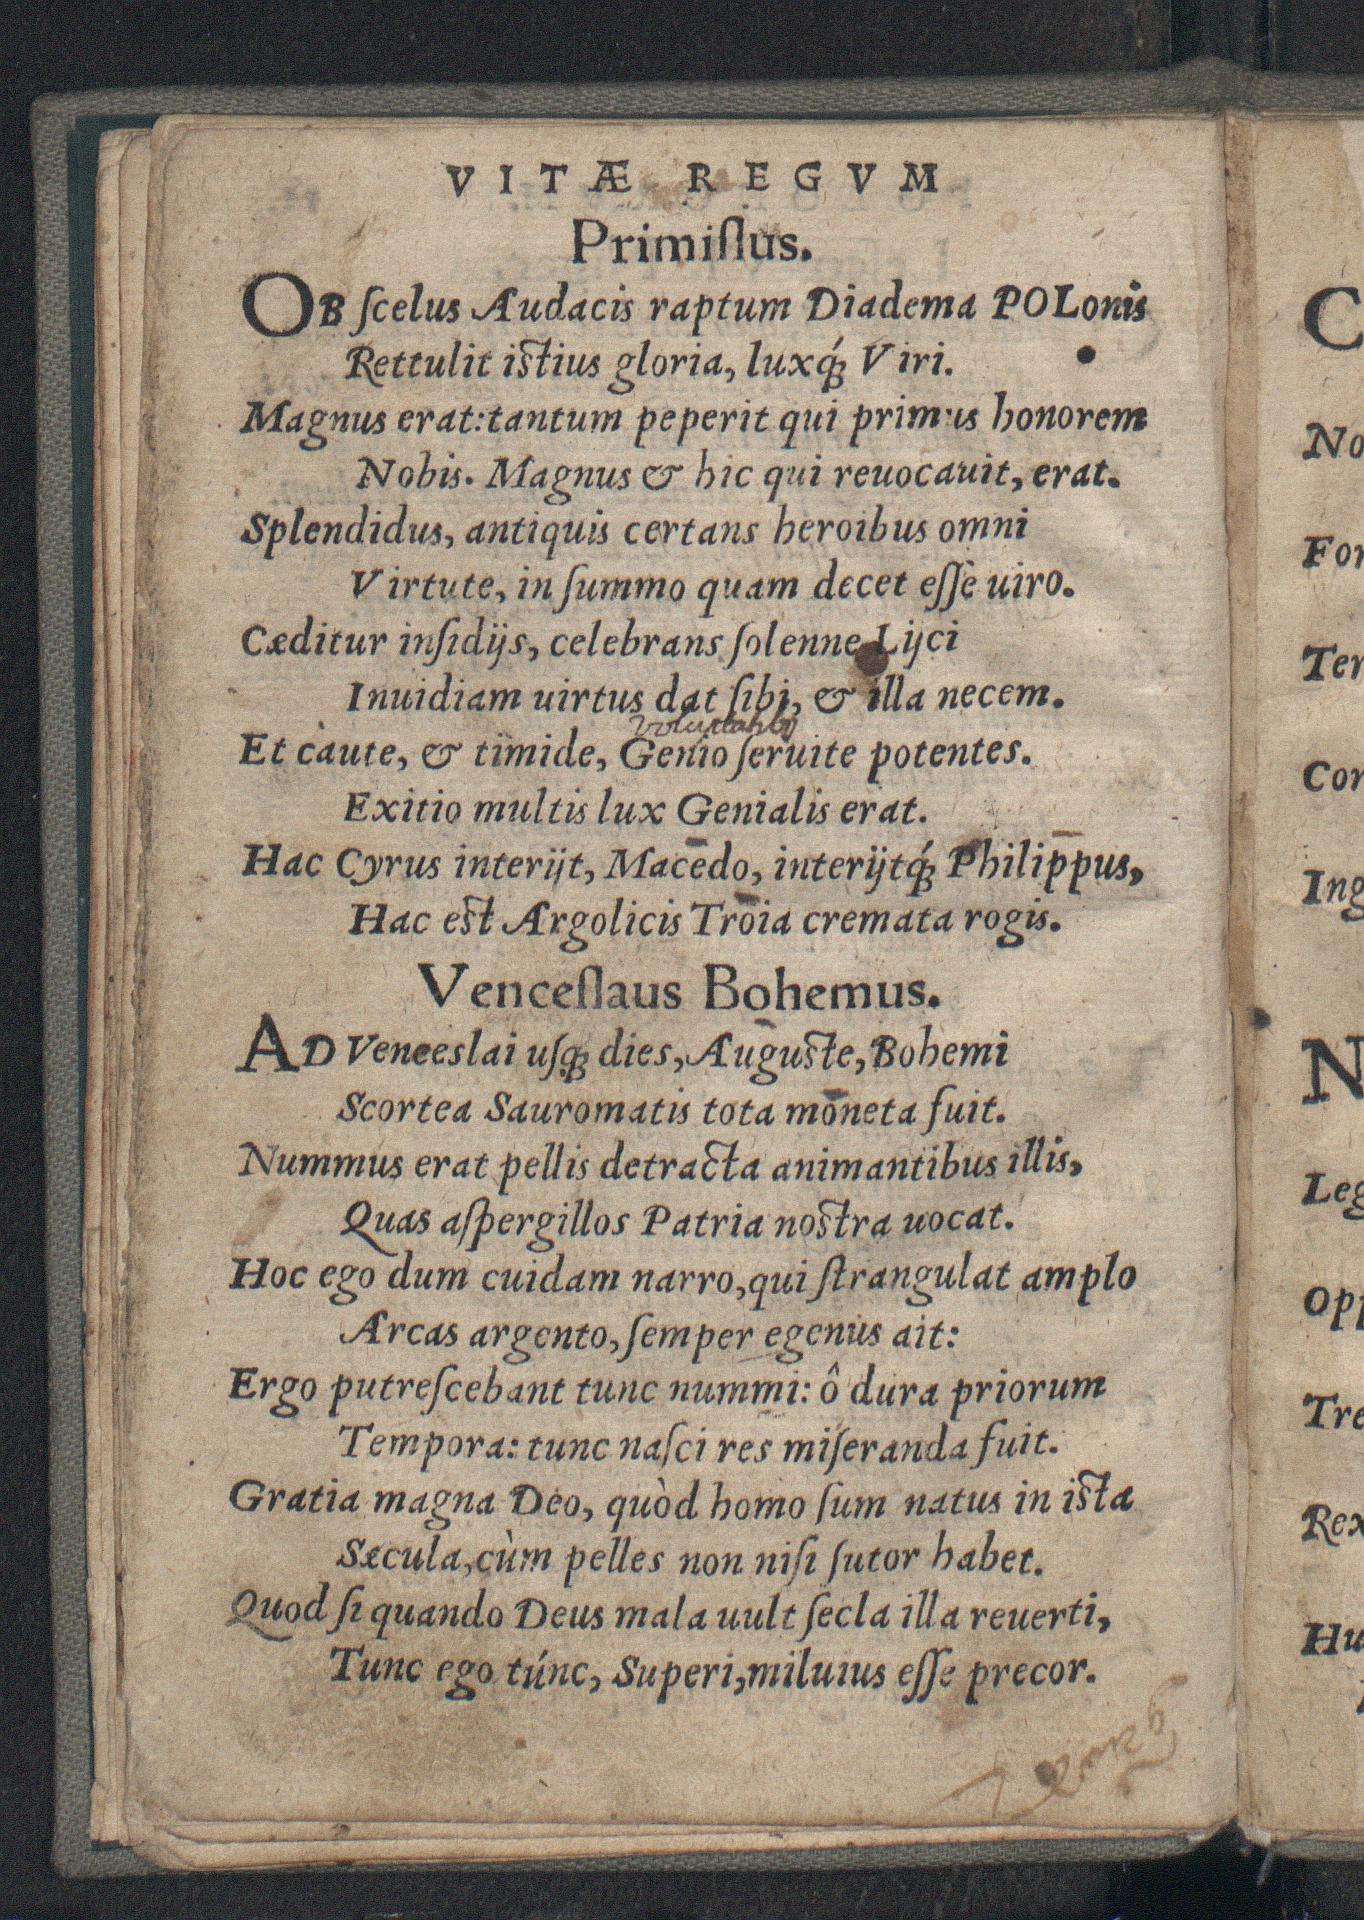 VITÆ REGVM
Primiſlus.
OB ſcelus Audacis raptum Diadema POLonis
Rettulit iſtius gloria, luxq́; Viri.
Magnus erat: tantum peperit qui primus honorem
Nobis. Magnus & hic qui reuocauit, erat.
Splendidus, antiquis certans heroibus omni
Virtute, in ſummo quam decet eſſe uiro.
Cæditur inſidijs, celebrans ſolenne Lijci
Inuidiam uirtus dat ſibi, & illa necem.
voluptatibus
Et càute, & timide, Genio ſeruite potentes.
Exitio multis lux Genialis erat.
Hac Cyrus interijt, Macedo, interijtq́; Philippus,
Hac eſt Argolicis Troia cremata rogis.
Venceſlaus Bohemus.
AD Venceslai uſq; dies, Auguſte, Bohemi
Scortea Sauromatis tota moneta fuit.
Nummus erat pellis detracta animantibus illis,
Quas aſpergillos Patria noſtra uocat.
Hoc ego dum cuidam narro, qui ſtrangulat amplo
Arcas argento, ſemper egenus ait:
Ergo putreſcebant tunc nummi: ô dura priorum
Tempora: tunc naſci res miſeranda fuit.
Gratia magna Deo, quòd homo ſum natus in iſta
Sæcula, cùm pelles non niſi ſutor habet.
Quod ſi quando Deus mala uult ſecla illa reuerti,
Tunc ego túnc, Superi, miluius eſſe precor.
C
No
For
Ter
Cor
Ing
N
Leg
Opp
Tre
Rex
Hu